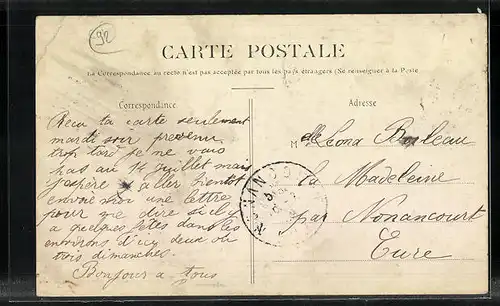 92
CARTE POSTALE
La Correspondance au recto n'est pas acceptée par tous les pays étrangers (Se renseigner à la Poste
Correspondance
Reçu ta carte seulement
mardi soir prevenu
trop tard je ne vais
pas au 14 juillet mais
j'espère y aller bientot
envoie moi une lettre
pour me dire si il y
a quelques fêtes dans les
environs d'icy deux ou
trois dimanches.
Bonjour a tous
Adresse
M elle Leona
La Madeleine
par Nonancourt
Eure